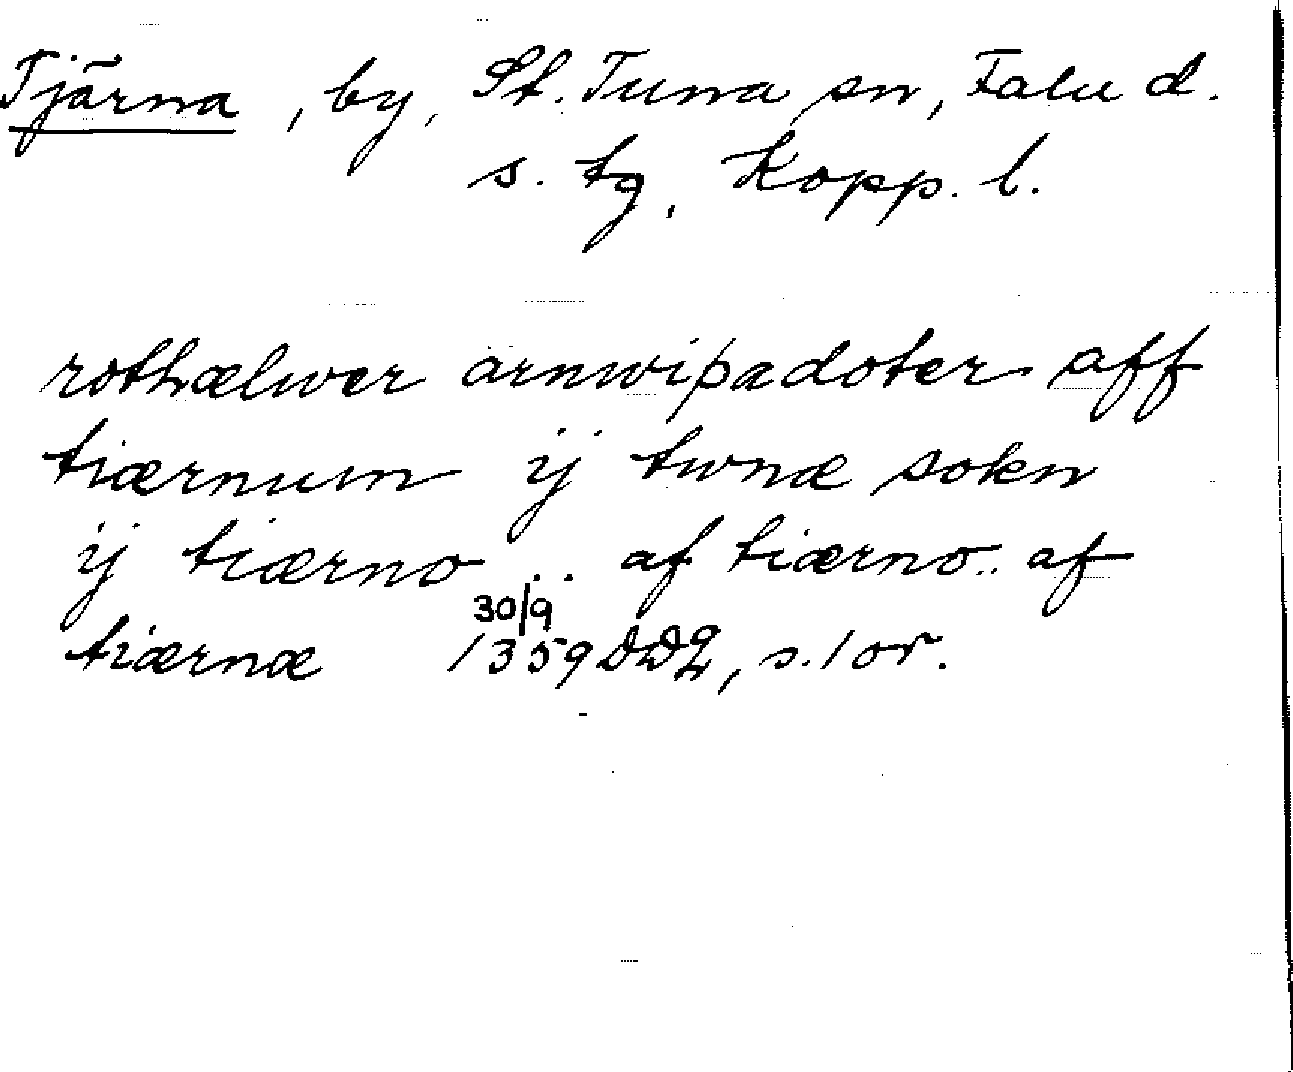 Tjärna, by, St. Tuna sn, Falu d.
s. tg, Kopp. l.
rothælwer arnwiþadoter aff
tiærnum ij twnæ sokn
ij tiærno .. af tiærno .. af
30/9
tiærnæ 1359 DD2, s. 1 or.